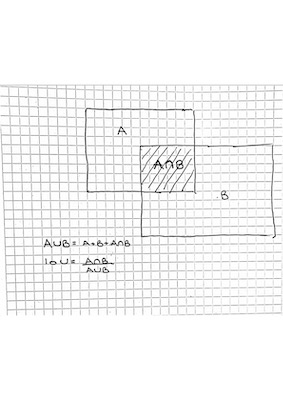 A
A∩B
B
A∪B = A+B+A∩B
IoU = A∩B
A∪B